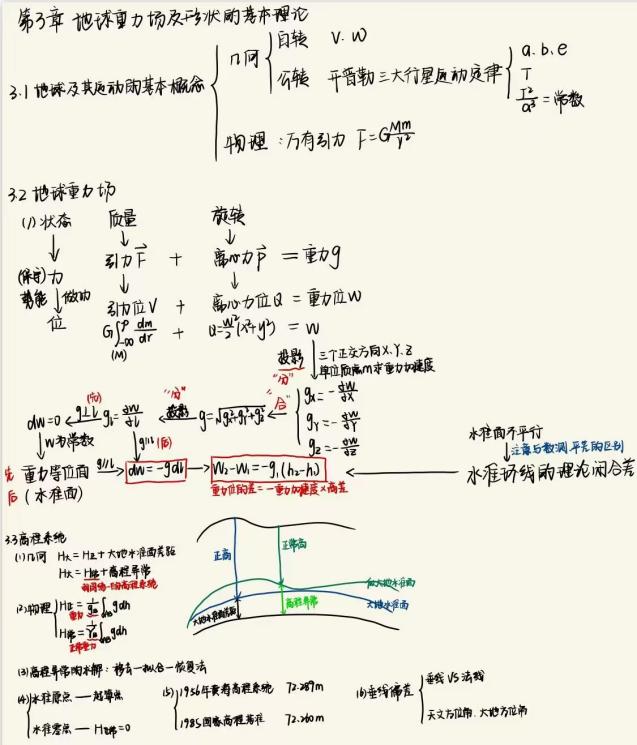 第3章 地球重力场及形状的基本理论
3.1 地球及其运动的基本概念
几何
自转 v.w
公转 开普勒三大行星运动定律
a.b.e
T
T²/a³ = 常数
物理：万有引力 F=G Mm/r²
3.2 地球重力场
(1) 状态 质量 旋转
(保守)力 引力F + 离心力P = 重力g
势能 做功
位 引力位V + 离心力位Q = 重力位W
G∫dm/r + Q=w²/2(x²+y²) = W
(M)
投影 三个正交方向X.Y.Z
单位质点m求重力加速度
"分" "合"
gx=-∂W/∂X
gY=-∂W/∂Y
gz=-∂W/∂Z
dW=0 (先) g⊥l gl=∂W/∂l "分" 投影 g=√gx²+gY²+gz²
W为常数 g∥l (后)
先 重力等位面 g∥l dW=-gdl W₂-W₁=-g₁(h₂-h₁)
后 (水准面) 重力位的差=-重力加速度×高差
水准面不平行
注意与数测平差的区别
水准环线的理论闭合差
3.3 高程系统
(1) 几何 H大=H正+大地水准面差距
H大=H常+高程异常
我国统一的高程系统
(2) 物理 H正=1/gm∫gdh
重力
H常=1/γm∫gdh
正常重力
正高 正常高
似大地水准面
大地水准面
大地水准面差距 高程异常
(3) 高程异常的求解：移去—拟合—恢复法
(4) 水准原点 — 起算点
水准零点 — H正常=0
(5) 1956年黄海高程系统 72.289m
1985国家高程基准 72.260m
(6) 垂线偏差
垂线 VS 法线
天文方位角、大地方位角